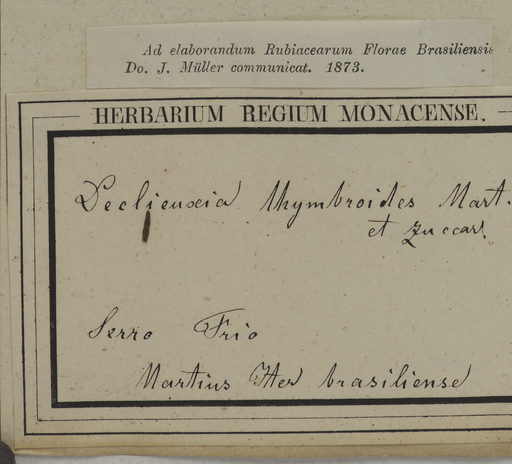 Ad elaborandum Rubiacearum Florae Brasiliensis
Do. J. Müller communicat. 1873.
HERBARIUM REGIUM MONACENSE.
Declieuxia thymbroides Mart.
et Zuccar.
Serro Frio
Martius Iter brasiliense